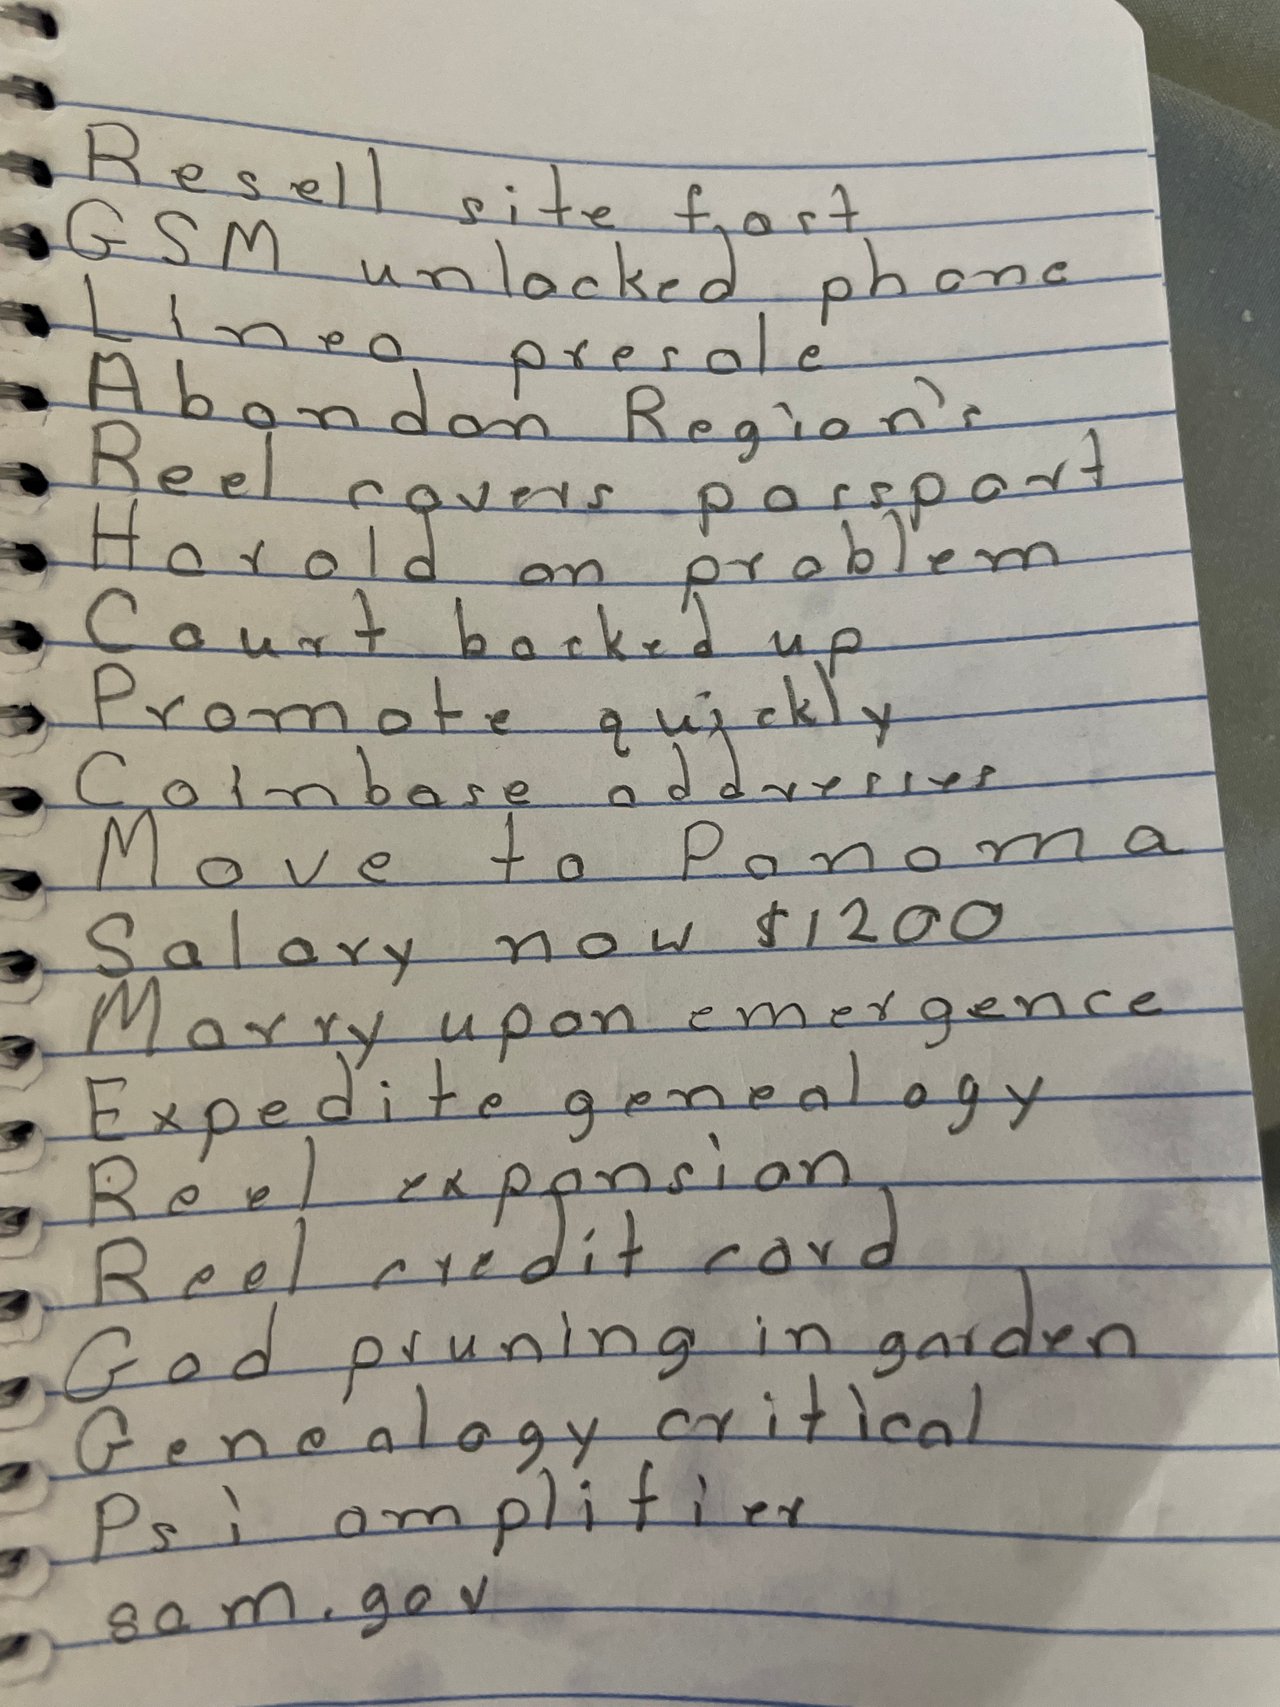 Resell site fast
GSM unlocked phone
Linea presale
Abandon Region's
Reel covers passport
Harold on problem
Court backed up
Promote quickly
Coinbase addresses
Move to Panama
Salary now $1200
Marry upon emergence
Expedite genealogy
Reel expansion
Reel credit card
God pruning in garden
Genealogy critical
Psi amplifier
sam.gov